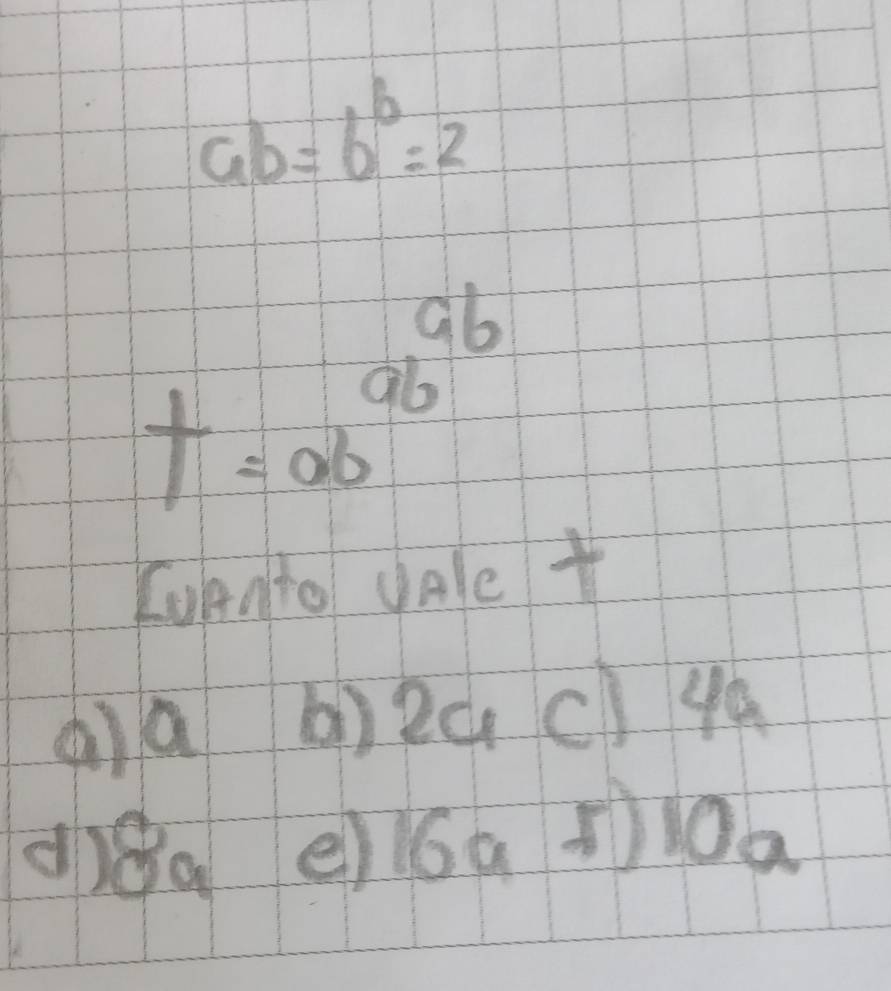 ab = b^b = 2
t = ab^ab^ab
Cuanto vale t
a) a b) 2a c) 4a
d) 8a e) 16a f) 10a